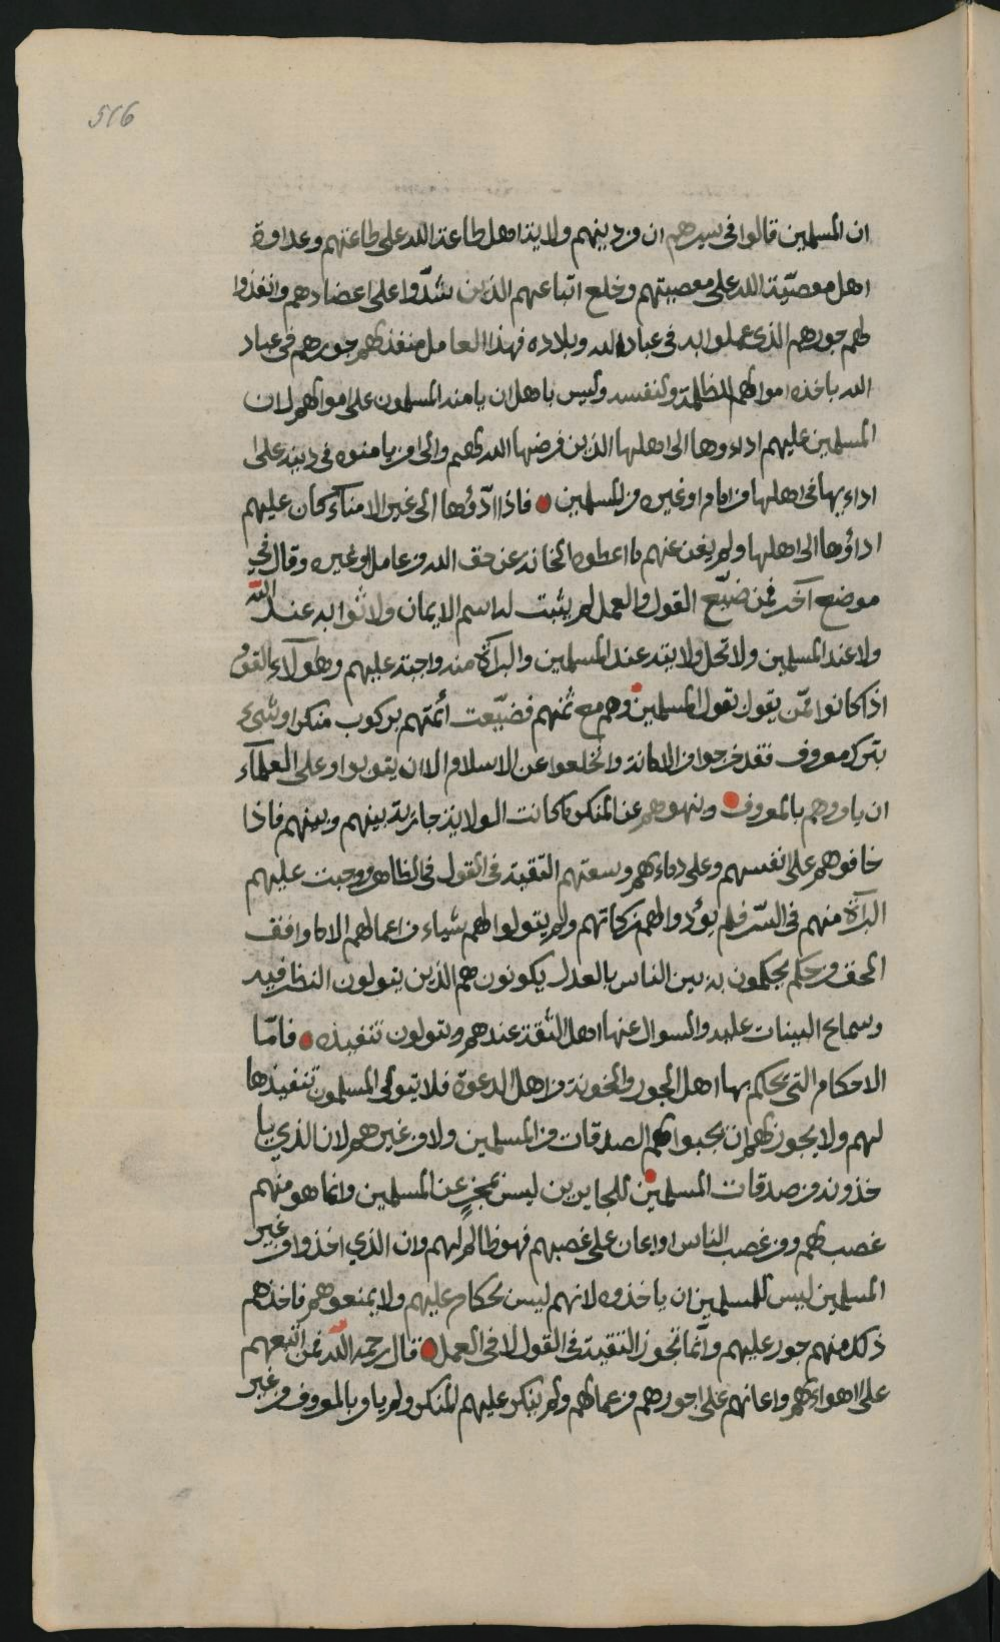 516
ان المسلمين قالوا في سيرهم ان من دينهم ولاية اهل طاعة الله على طاعتهم وعداوة
اهل معصية الله على معصيتهم وخلع اتباعهم الذين شدّوا على اعضادهم وانفذوا
لهم جورهم الذي عملوا به في عباد الله وبلاده فهذا العامل منفذ لهم جورهم في عباد
الله باخذه اموالهم للظلمة ولنفسه وليس باهل ان يامنه المسلمون على اموالهم لان
المسلمين عليهم اداءوها الى اهلها الذين فرضها الله لهم والى من يامنوه في دينه على
اداء بها في اهلها من امام او غيره من المسلمين فاذا ادّؤها الى غير الامناء كان عليهم
اداؤها الى اهلها ولم يغن عنهم ما اعطوه الخانة عن حق الله من عامل او غيره وقال في
موضع آخر فمن ضيّع القول والعمل لم يثبت له اسم الايمان ولا ثواب له عند الله
ولا عند المسلمين ولا تحل ولايته عند المسلمين والبراءة منه واجبة عليهم وهؤلآء القوم
اذا كانوا ممّن يقول بقول المسلمين وهم مع ائمتهم فضيّعت ائمتهم بركوب منكر او شيء
بترك معروف فقد خرجوا من الامانة وانخلعوا عن الاسلام الا ان يتوبوا وعلى العلمآء
ان يامروهم بالمعروف وينهوهم عن المنكر ما كانت الولاية جارية بينهم وبينهم فاذا
خافوهم على انفسهم وعلى دماءهم وسعتهم التقية في القول في الظاهر ووجبت عليهم
البراءة منهم في السّر فلم يؤدوا لهم زكاتهم ولم يتولوا لهم شياء من اعمالهم الا ما وافق
الحق من حكم يحكمون به بين الناس بالعدل يكونون هم الذين يتولون النظر فيه
وسماع البينات عليه والسوال عنها اهل الثقة عندهم ويتولون تنفيذه فامّا
الاحكام التي يحكم بها اهل الجور والخونة من اهل الدعوة فلا يتولى المسلمون تنفيذها
لهم ولا يجوز لهم ان يجبوا لهم الصدقات من المسلمين ولا من غيرهم لان الذي يا
خذونه من صدقات المسلمين للجايرين ليس بمجز عن المسلمين وانما هو منهم
غصب لهم ومن غصب الناس او اعان على غصبهم فهو ظالم لهم وان الذي اخذوا من غير
المسلمين ليس للمسلمين ان ياخذوه لانهم ليس بحكام عليهم ولا يمنعوهم فاخذهم
ذلك منهم جور عليهم وانما تجوز التقية في القول لا في العمل قال رحمه الله فمن اتبعهم
على اهوائهم واعانهم على جورهم من عمالهم ولم ينكر عليهم المنكر ولم يامر بالمعروف من غير